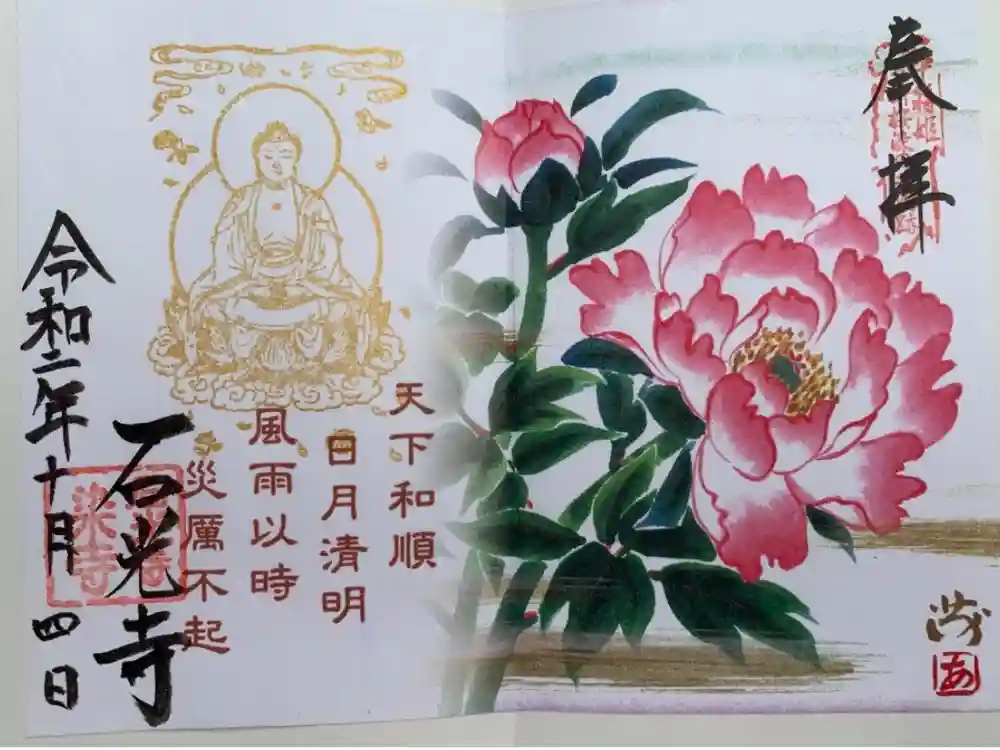 奉拝
天下和順
日月清明
風雨以時
災厲不起
石光寺
令和二年十月四日
染寺